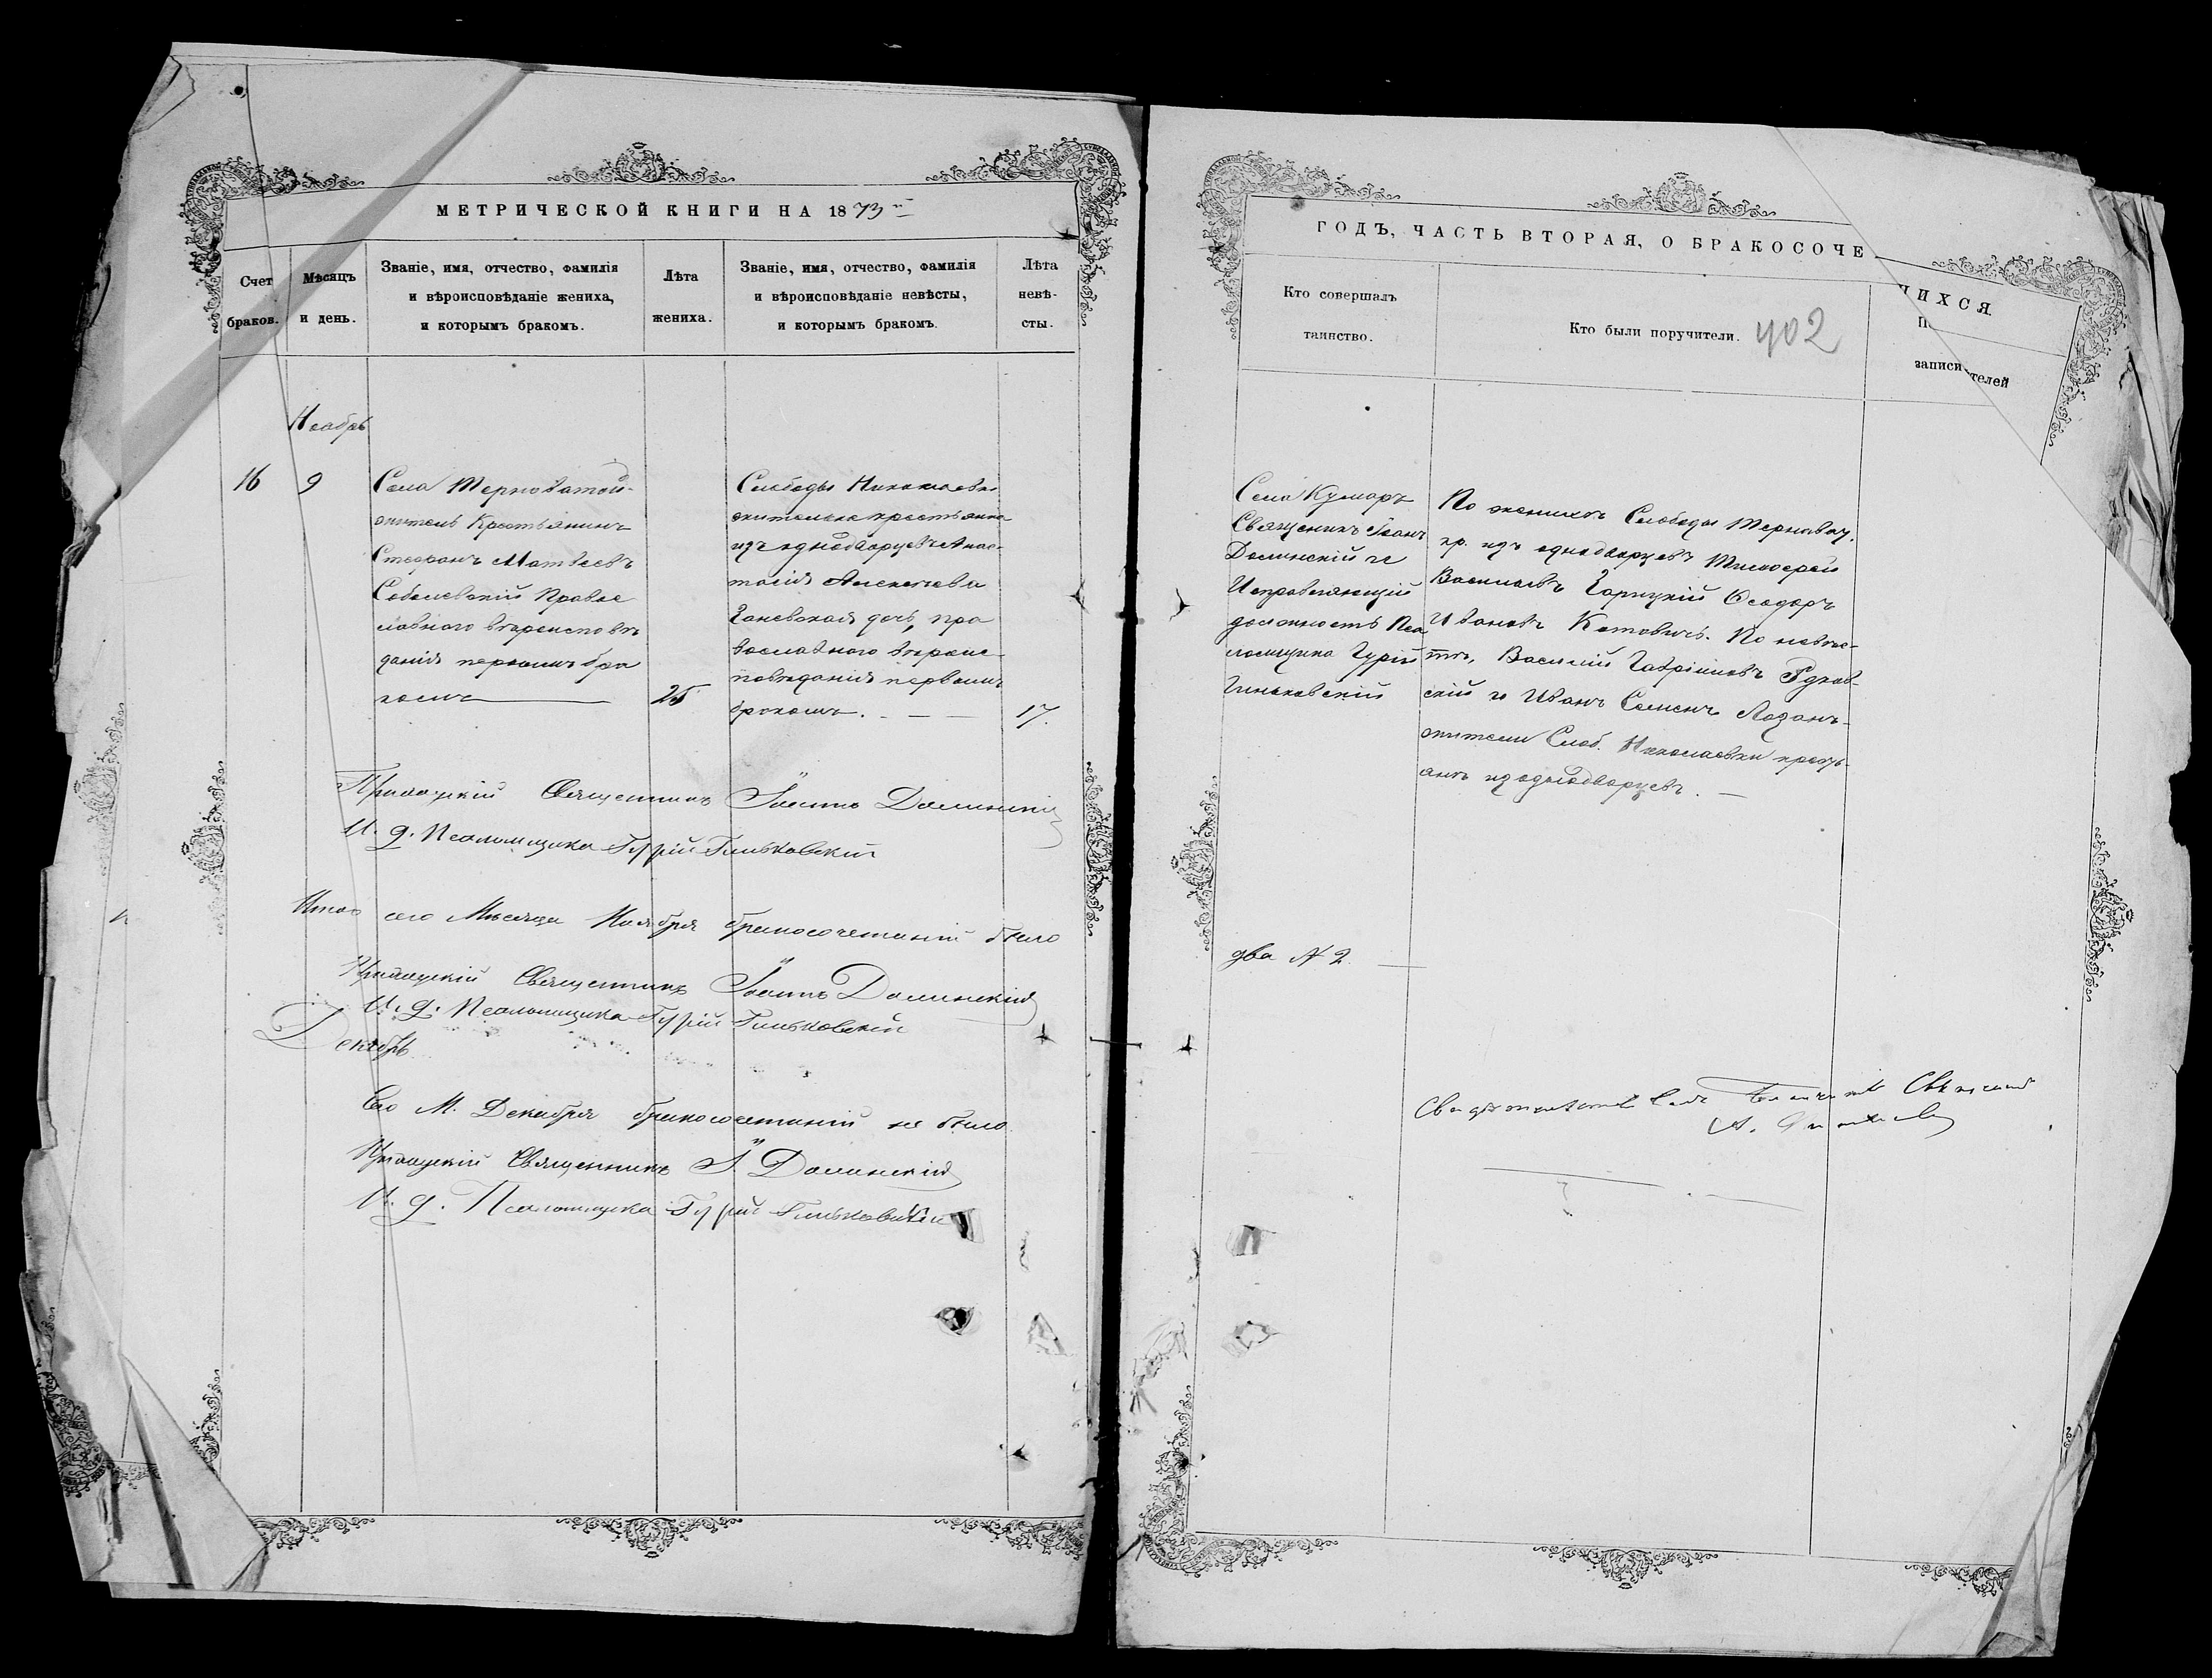 МЕТРИЧЕСКОЙ КНИГИ НА 1873й
Счет браковъ.
Мѣсяцъ и день.
Званіе, имя, отчество, фамилія
и вѣроисповѣданіе жениха,
и которымъ бракомъ.
Лѣта
жениха.
Званіе, имя, отчество, фамилія
и вѣроисповѣданіе невѣсты,
и которымъ бракомъ.
Лѣта
невѣ-
сты.
Ноябрь
16
9
Села Терноватой
житель Крестьянинъ
Стефанъ Матвеевъ
Соболевскій Правос
лавного вѣроисповѣ
данія первымъ бра
комъ
25
Слободы Николаевки
жителька крестьянка
изъ однодворцевъ Анас-
тасія Алексеева
дочь, пра
вославного вѣроис-
повѣданія первымъ
бракомъ.
17.
Приходскій Священникъ Іоаннъ Долинскій
И. д. Псаломщика Гурій Гиньковскій
Итого сего Месяца Ноября бракосочетаній было
Приходскій Священникъ Іоаннъ Долинскій
И. д. Псаломщика Гурій Гиньковскій
Декабрь
Сего М. Декабря бракосочетаній не было
Приходскій Священникъ І. Долинскій
И. д. Псаломщика Гурій Гиньковскій
ГОДЪ, ЧАСТЬ ВТОРАЯ, О БРАКОСОЧЕ
ИХСЯ
Кто совершалъ
таинство.
Кто были поручители. 402
записи
телей
Села Кумаръ
Священникъ Іоанъ
Долинскій и
Исправляющій
должность Пса
ломщика Гурій
Гиньковскій
По женихѣ Слободы Терноват.
кр. изъ однодворцевъ Тимофей
Васильевъ Ѳеодоръ
Ивановъ Котовичъ. По невѣс-
тѣ, Василій Гавріиловъ
скій и Иванъ Семенъ Лозанъ-
жители Слоб. Николаевки кресть-
янъ изъ однодворцевъ.
два № 2.